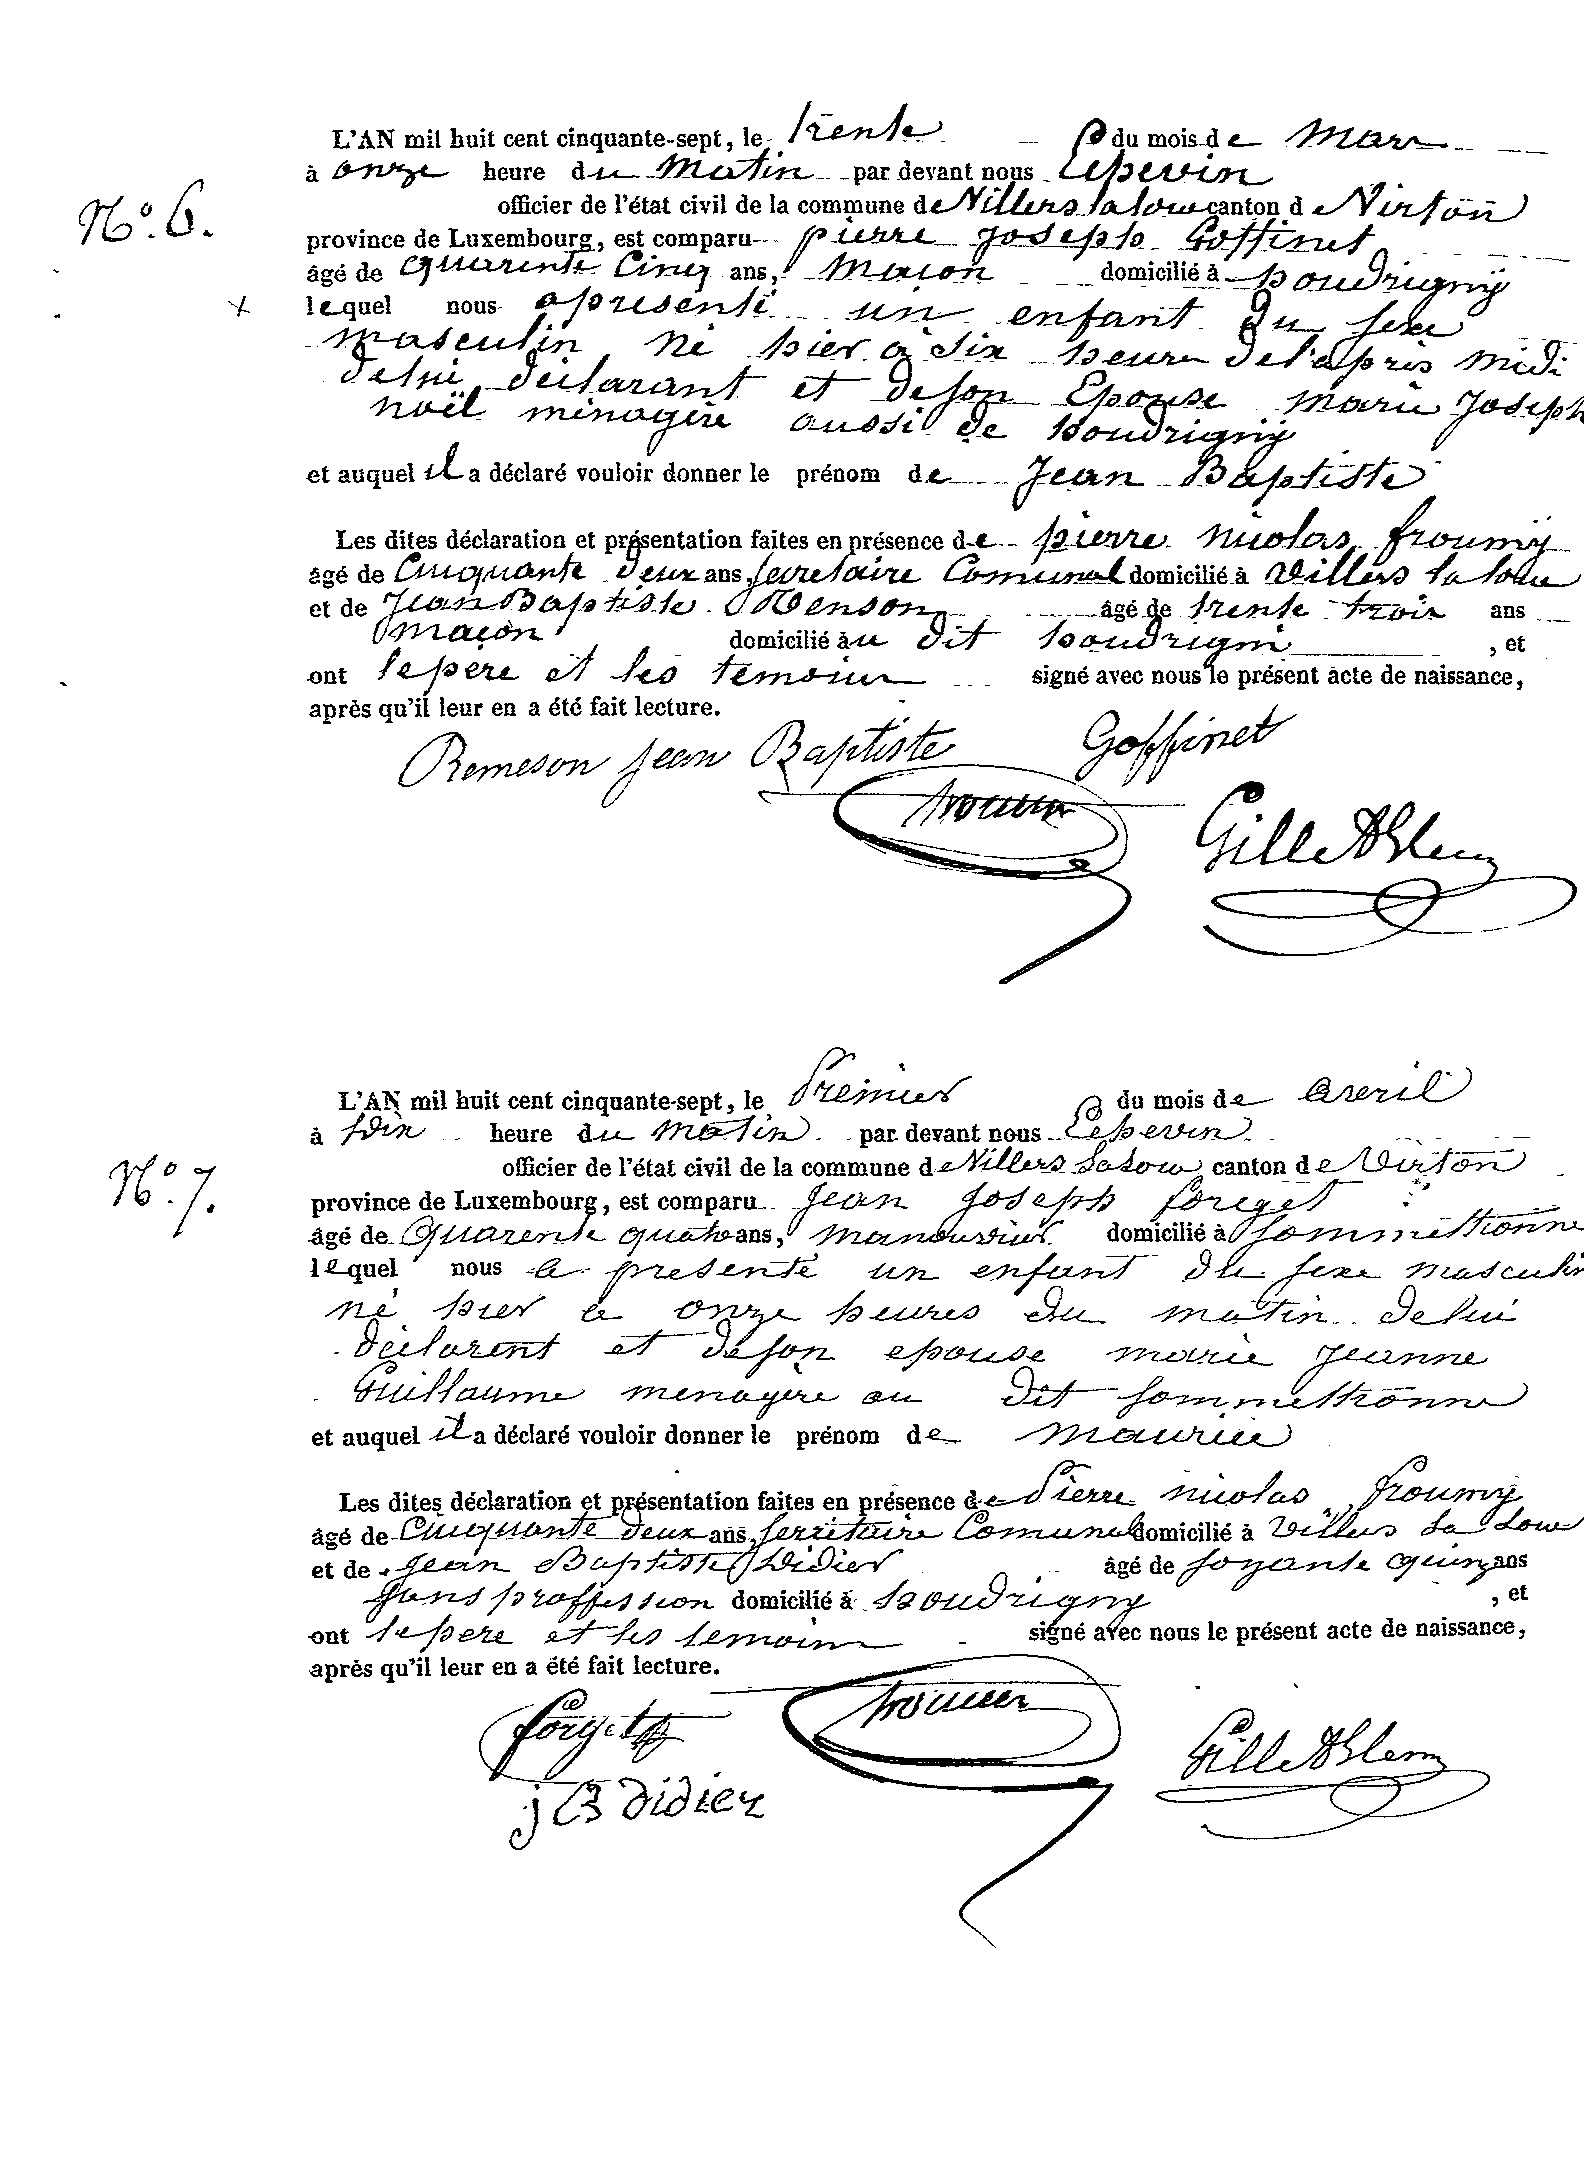 L'AN mil huit cent cinquante-sept, le trente du mois de mars
à onze heure du Matin par devant nous
officier de l'état civil de la commune de Villers la loue canton de Virton
N.º 6.
province de Luxembourg, est comparu pierre joseph Goffinet
âgé de quarente Cinq ans, Maçon domicilié à houdrigny
lequel nous apresenté un enfant du sexe
masculin né hier à Six heures del'après midi
delui déclarant et deson Epouse marie Joseph
noël ménagère aussi de houdrigny
et auquel il a déclaré vouloir donner le prénom de Jean Baptiste
Les dites déclaration et présentation faites en présence de pierre nicolas froumy
âgé de Cinquante deux ans, Secretaire Comunal domicilié à Villers la loue
et de Jean Baptiste âgé de trente trois ans
maçon domicilié au dit houdrigni , et
ont lepère et les temoins signé avec nous le présent acte de naissance,
après qu'il leur en a été fait lecture.
Remeson jean Baptiste Goffinet
L'AN mil huit cent cinquante-sept, le Premier du mois de avril
à Dix heure du matin par devant nous
officier de l'état civil de la commune de Villers la loue canton de Virton
N.º 7.
province de Luxembourg, est comparu Jean Joseph forget
âgé de Quarente quatre ans, manouvrier domicilié à Sommethonne
lequel nous a presenté un enfant du sexe masculin
né hier a onze heures du matin delui
déclarent et deson epouse marie Jeanne
Guillaume menagère au dit Sommethonne
et auquel il a déclaré vouloir donner le prénom de maurice
Les dites déclaration et présentation faites en présence de Pierre nicolas froumy
âgé de Cinquante deux ans, Serretaire Comunal domicilié à Villers la loue
et de Jean Baptiste Didier âgé de soyante quinz ans
sans proffession domicilié à houdrigny , et
ont lepere et les temoins signé avec nous le présent acte de naissance,
après qu'il leur en a été fait lecture.
forget
j B didier